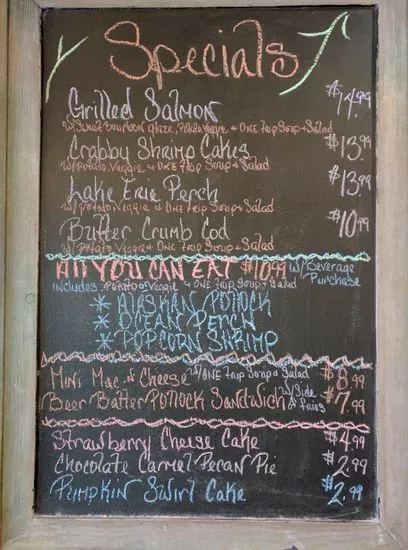 Specials
Grilled Salmon $14.99
w/Sweet Bourbon glaze, Potato, Veggie & ONE Trip Soup & Salad
Crabby Shrimp Cakes $13.99
w/Potato, Veggie & ONE Trip Soup & Salad
Lake Erie Perch $13.99
w/Potato Veggie & ONE Trip Soup & Salad
Butter Crumb Cod $10.99
w/Potato Veggie & ONE Trip Soup & Salad
All YOU CAN EAT $10.99 w/Beverage Purchase
Includes: Potato & Veggie & ONE Trip Soup & Salad
* ALASKAN POLLOCK
* OCEAN PERCH
* POPCORN SHRIMP
Mini Mac n Cheese w/ONE Trip Soup & Salad $8.99
Beer Batter POLLOCK Sandwich w/Side of fries $7.99
Strawberry Cheese Cake $4.99
Chocolate Carmel Pecan Pie $2.99
Pumpkin Swirl Cake $2.99